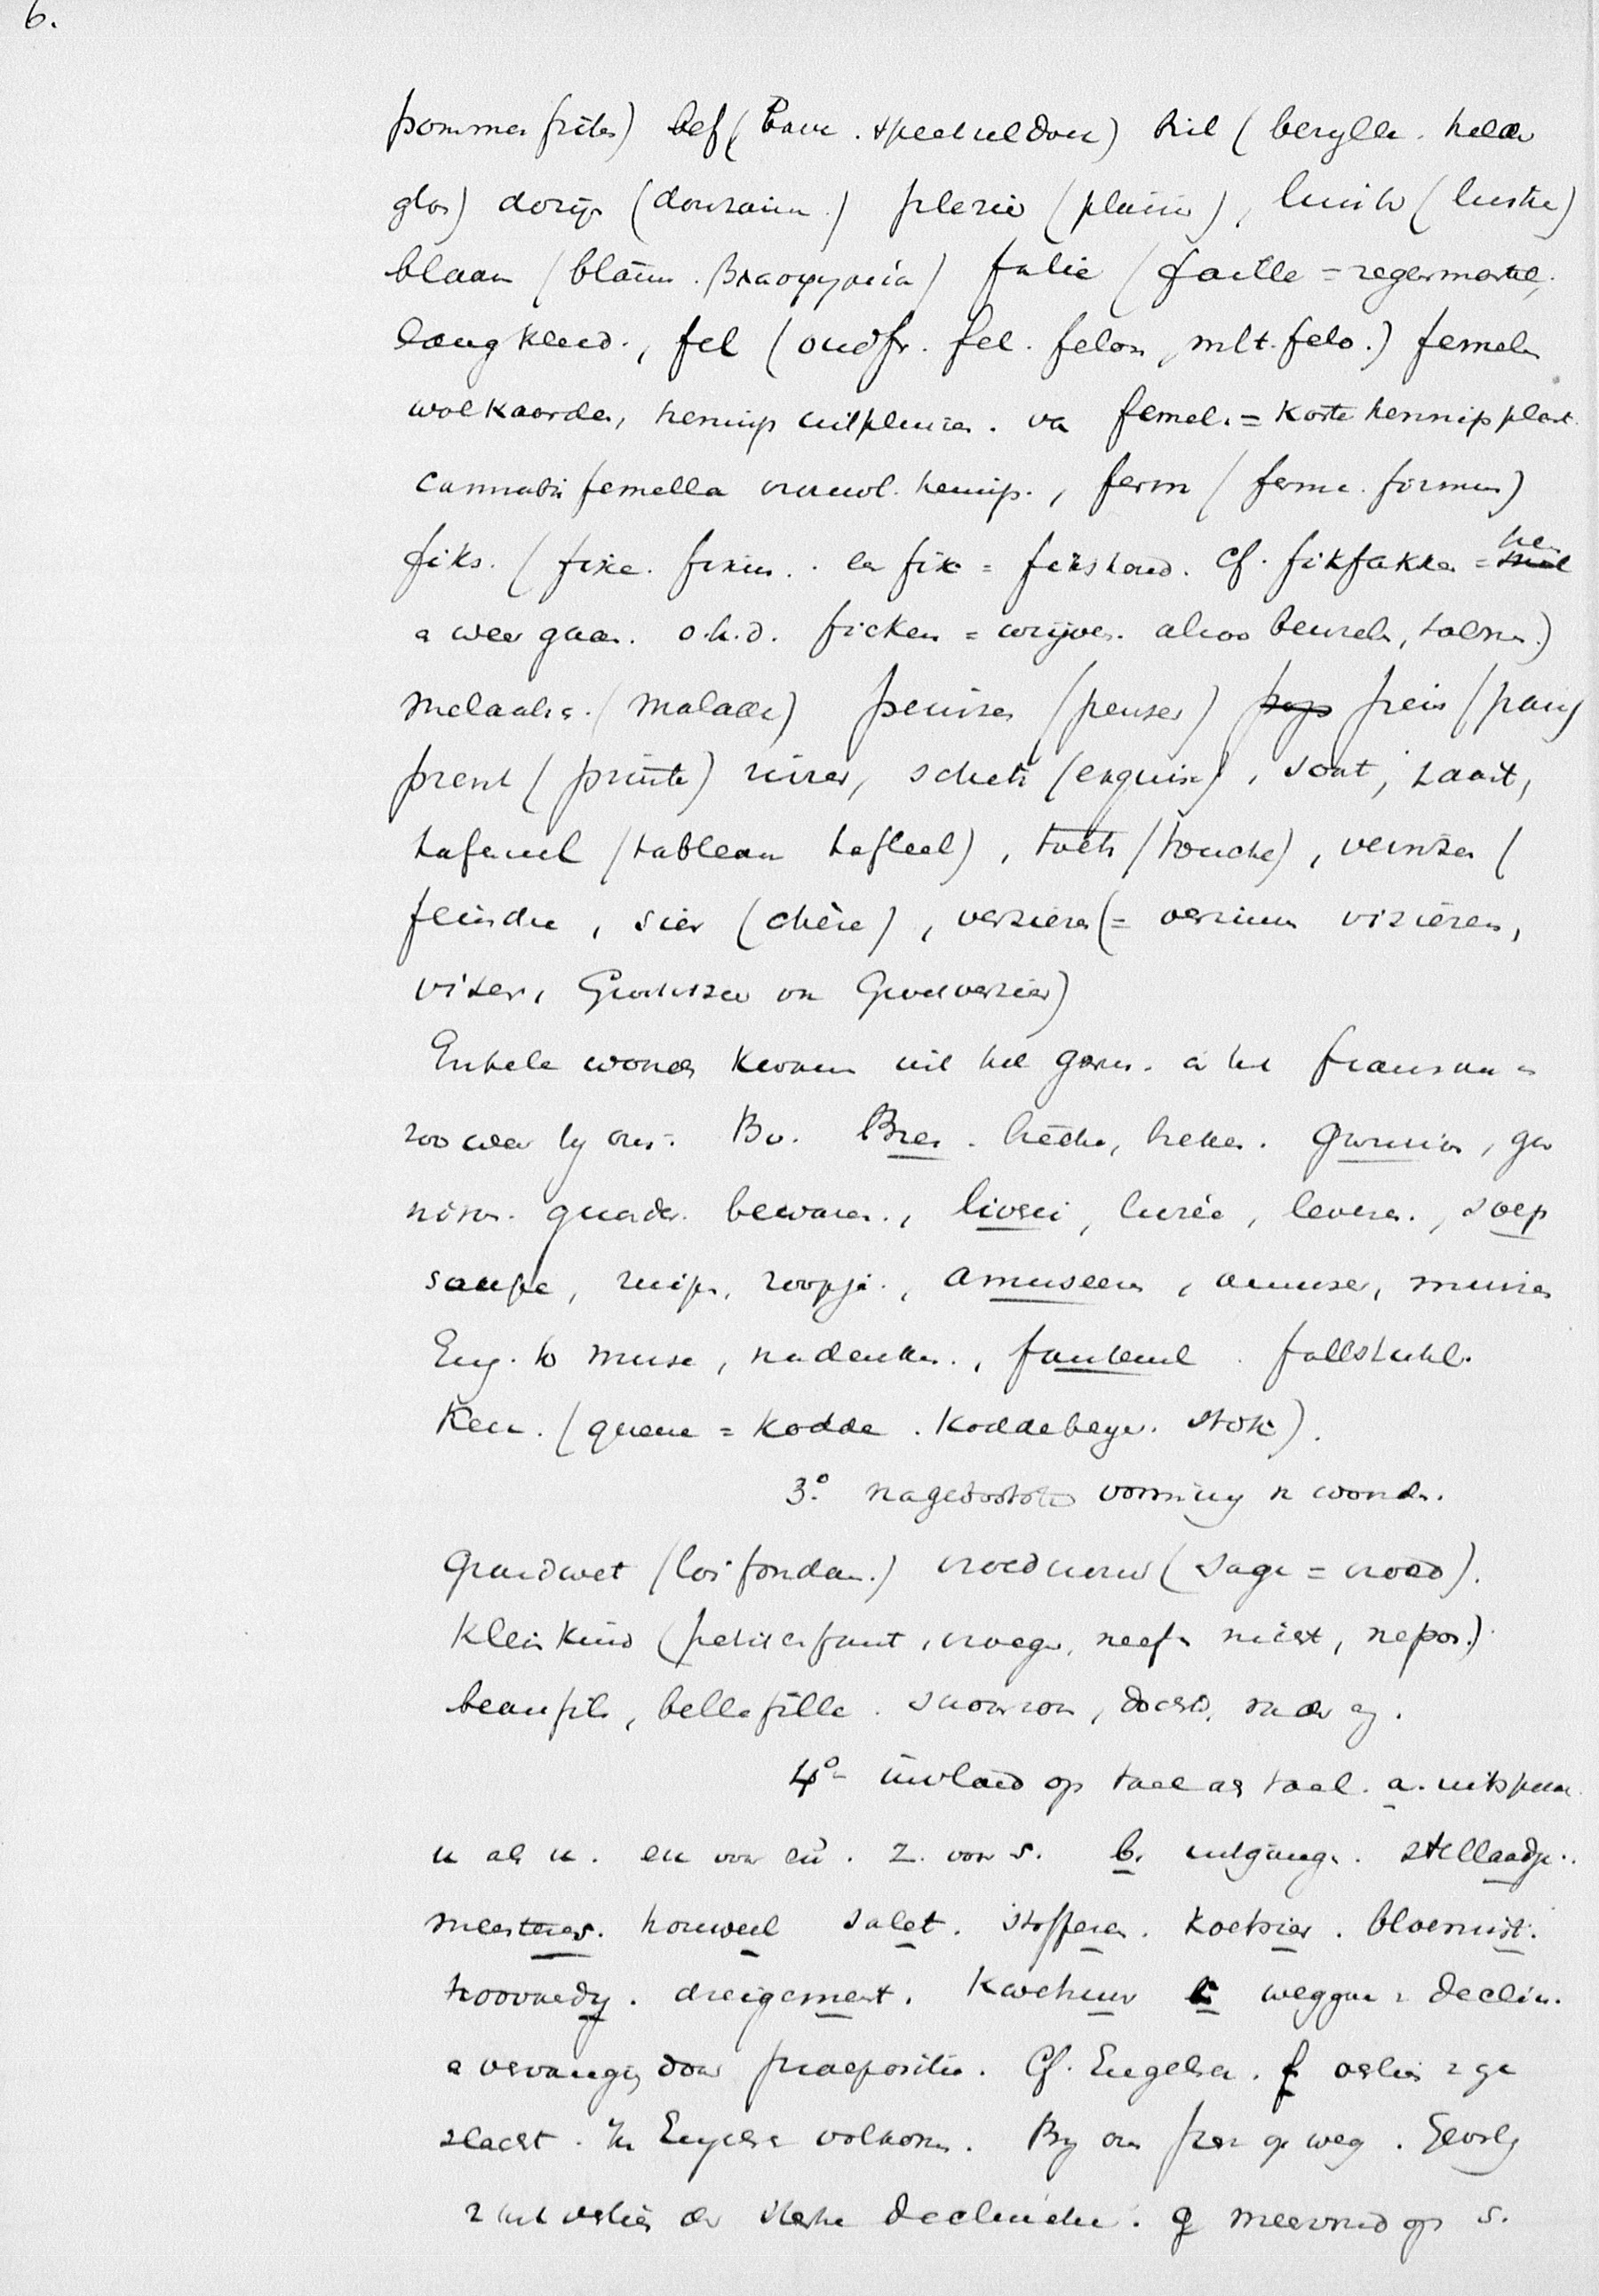 6.
pommes frites) bef (bave. speekseldoek) bril (berylle. helder
glas) dozijn (douzaine.) plezier (plaisir), luister (lustre)
blaam (blâme. βλασφημία) falie (faille = regenmantel,
lang kleed., fel (oudfr. fel. felon, mlt. felo.) femelen
wolkaarden, hennip uitpluizen. van femel. = korte hennipplant.
cannabis femella vrouwel. hennip., ferm (ferme. firmus)
fiks. (fixe. fixus. en fix = fikshond. Cf. fikfakken = heen
en weer gaan. o.h.d. ficken = wrijven. alsoo beuzelen, talmen.)
Melaatsch. (malade) peinzen (penser) preis (pays
prent (printe) schets (esquisse), sout,
tafereel (tableau tafleel), toets (touche), veinzen (
feindre, sier (chère), versieren (= versieren visieren,
viser,
Enkele woorden kwamen uit het germ. in het fransch en
zoo weer by ons. Bv. Bres. brèche, breken. garnizoen, gar
nison. garder bewaren., livrei, livrée, leveren., soep
soupe, zuipen, zoopje., amuseeren, amuser, muizen
Eng. to muse, nadenken., fauteuil. fallstuhl.
Keu. (queue = kodde. Koddebeyer. stok).
3.° nagebootste vorming v. woorden.
Grondwet (loi fondam.) vroedvrouw (sage = vroed).
Kleinkind (petit enfant, vroeger, neef en nicht, nepos.)
beaufils, bellefille. schoonzoon, docht. vader enz.
4° invloed op taal als taal. a. uitspraak
u als u. eu voor eu. z. voor s. b. uitgangen. stellaadje.
meesteres. houweel salet. stoffeeren. koetsier. bloemist.
hoovaerdy. dreigement. kwetsuur c weggaan v. declin.
en vervanging door praepositie. Cf. Engelsch. f verlies v. ge
slacht. In Engelsch volkomen. By ons fra op weg. Gevolg
v. het verlies der sterke declinatie. g meervoud op s.